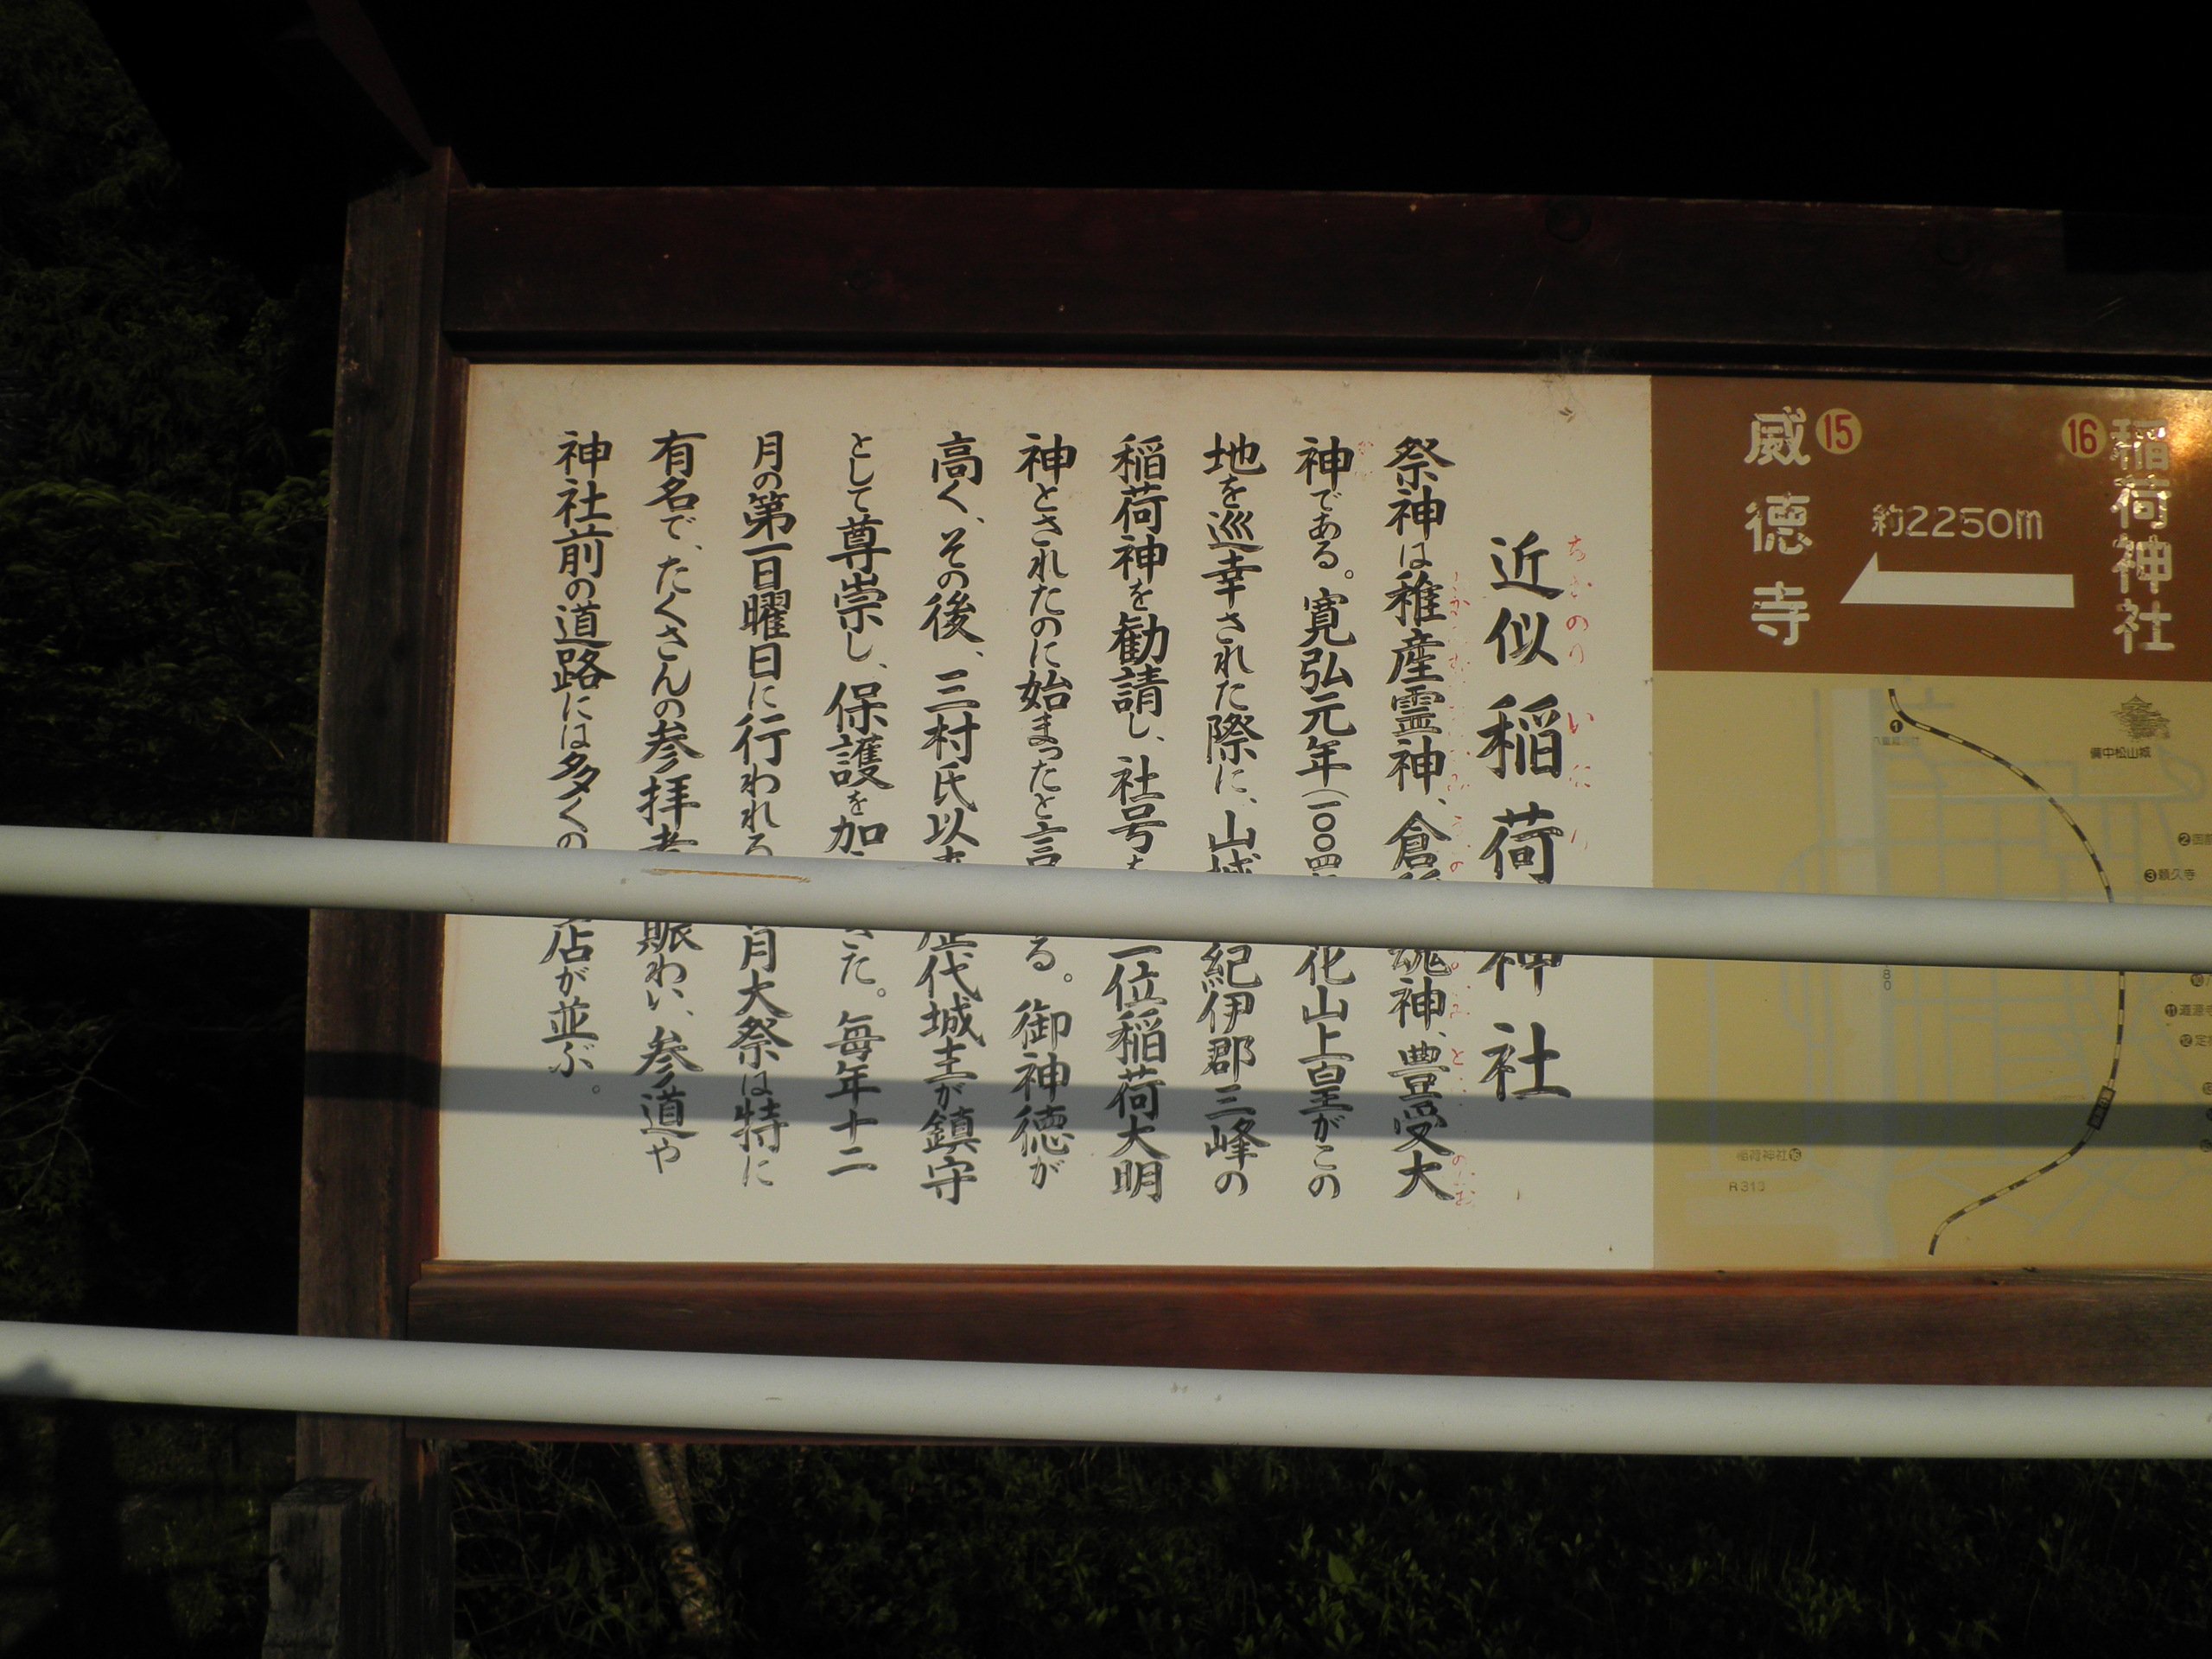 稲荷神社
16
約2250m
15
威徳寺
備中松山城
1
3 頼久寺
11
12
稲荷神社 16
R313
近似稲荷神社
祭神は稚産霊神、倉 魂神、豊受大
神である。寛弘元年(一〇〇四 花山上皇がこの
地を巡幸された際に、山城 紀伊郡三峰の
稲荷神を勧請し、社号を 一位稲荷大明
神とされたのに始まったと言 る。御神徳が
高く、その後、三村氏以来 歴代城主が鎮守
として尊崇し、保護を加 た。毎年十二
月の第一日曜日に行われる 月大祭は特に
有名で、たくさんの参拝者 賑わい、参道や
神社前の道路には多くの 店が並ぶ。